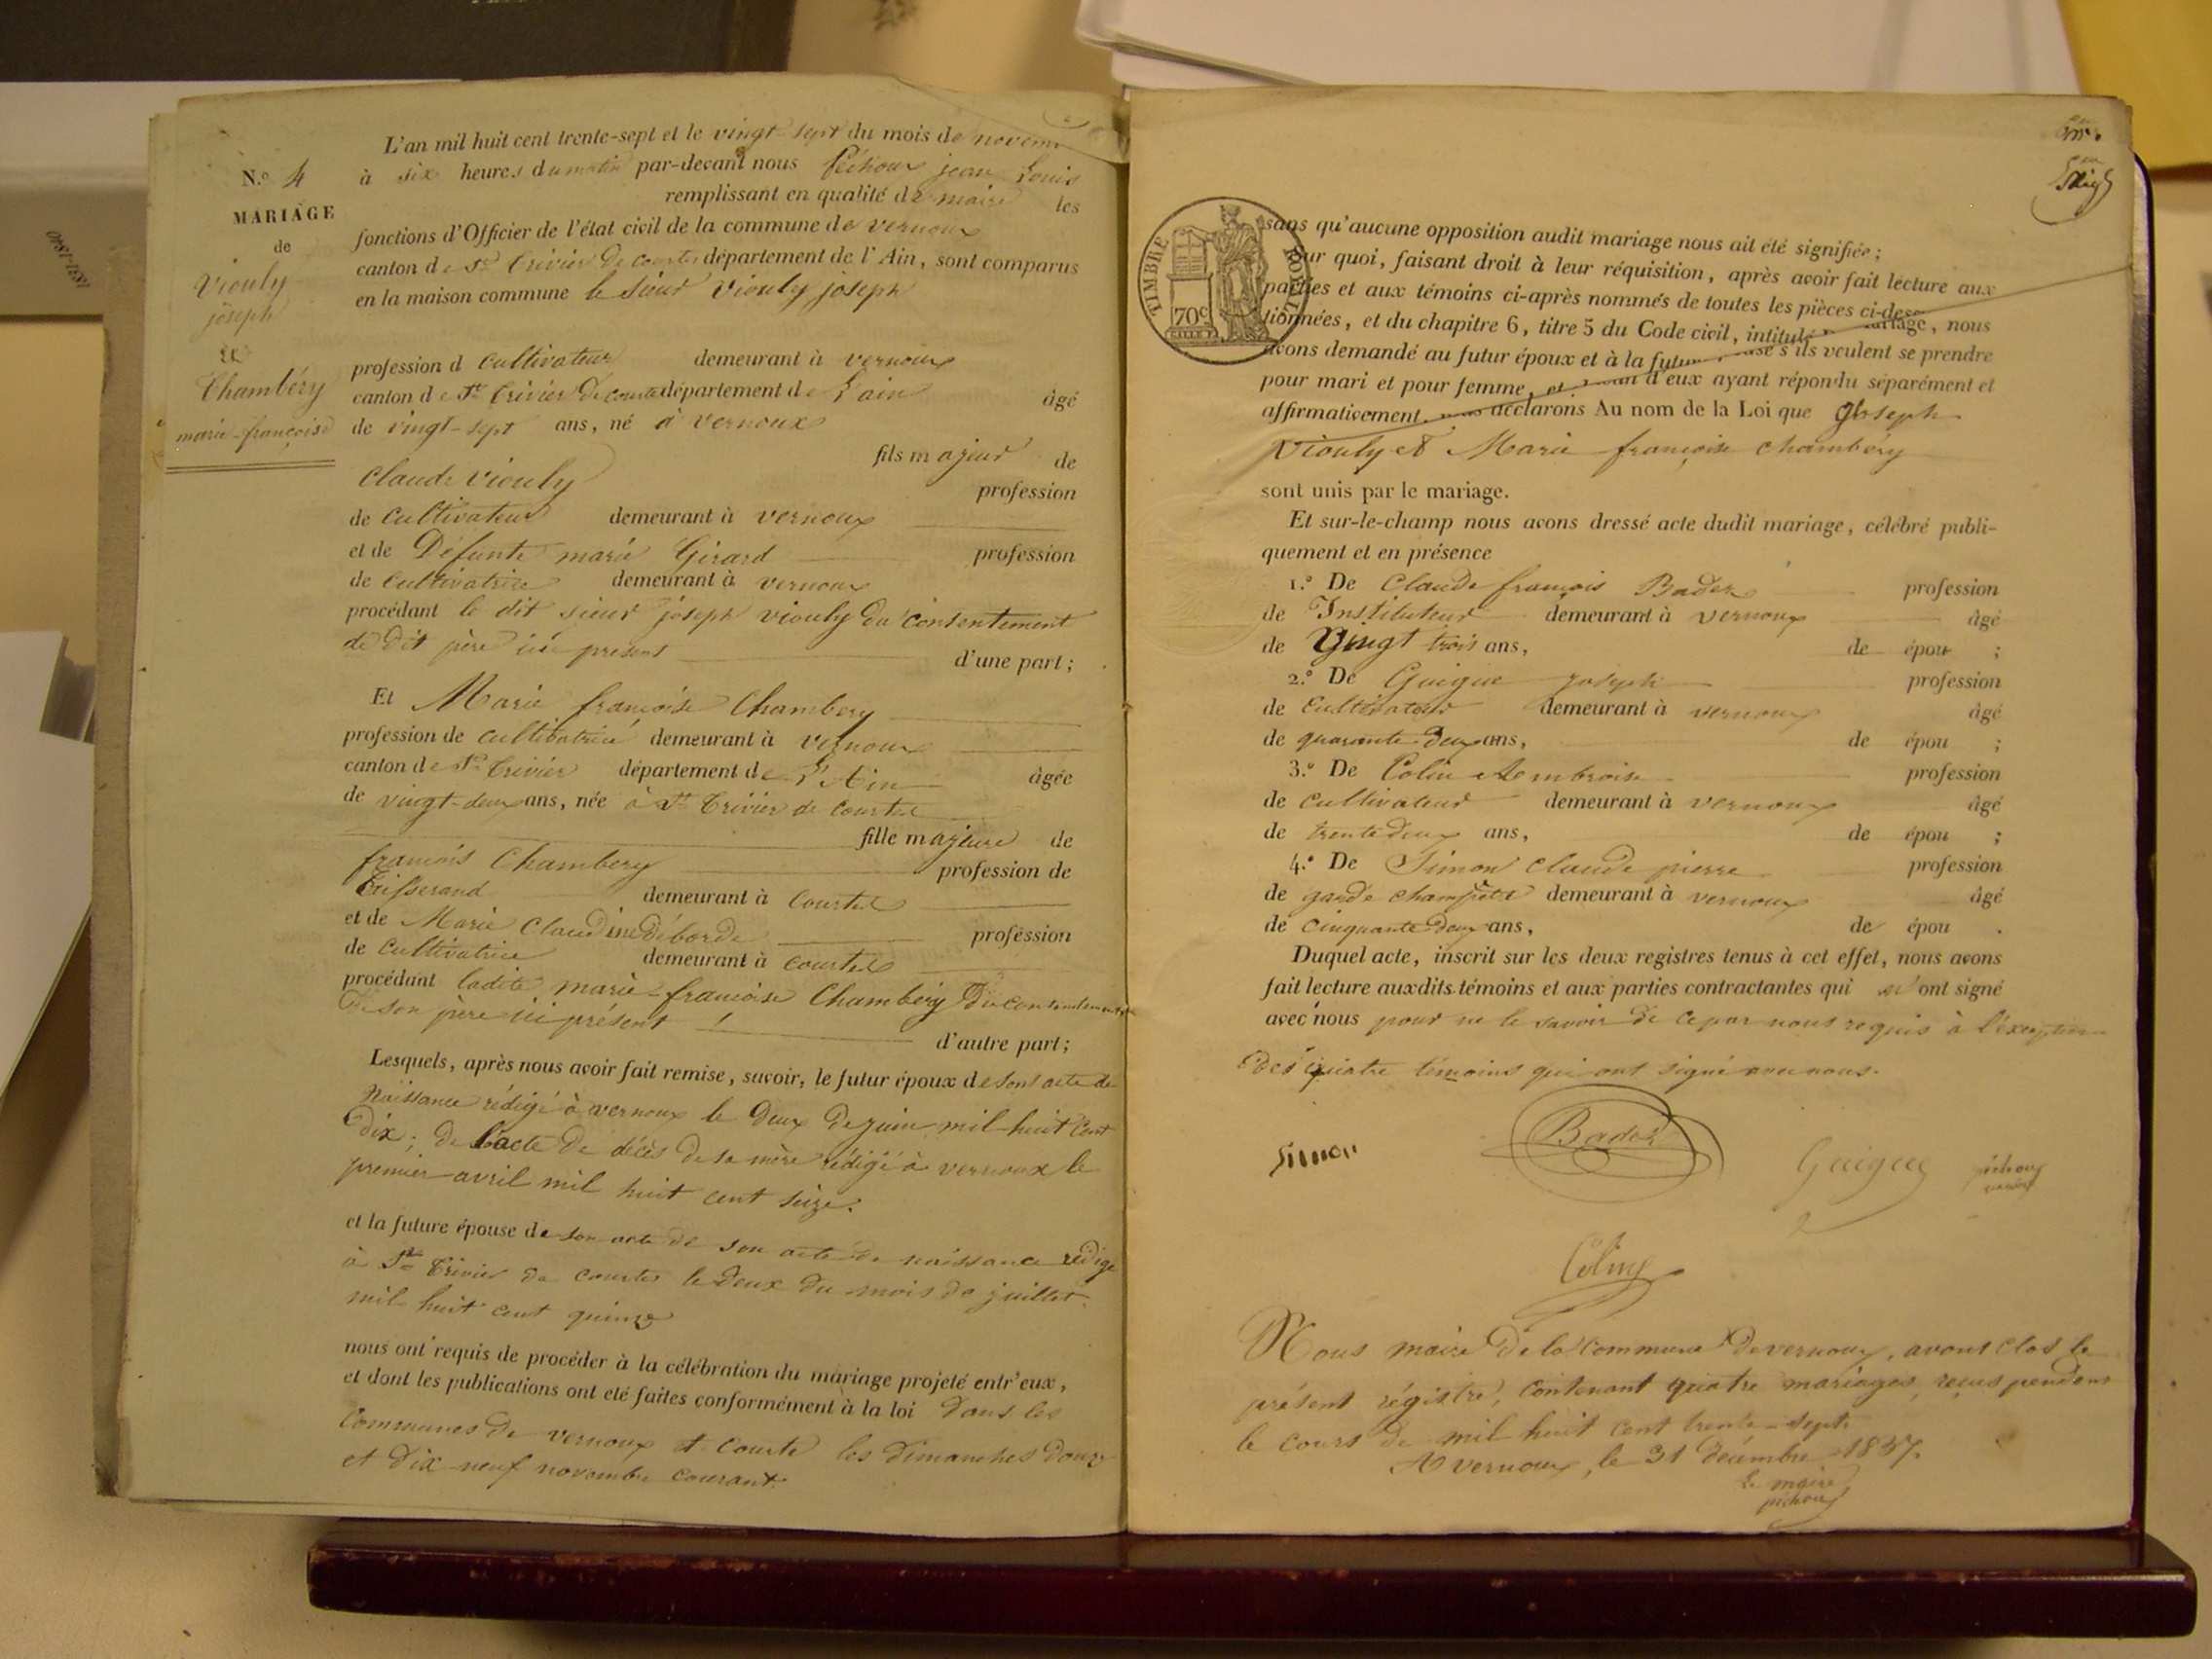 L'an mil huit cent trente-sept et le vingt sept du mois de novem
N.º 4 à six heures du matin par-devant nous Péchoux jean Louis
remplissant en qualité de maire les
MARIAGE
de
Viouly
joseph
et
Chambéry
marie-françoise
fonctions d'Officier de l'état civil de la commune de vernoux
canton de St Trivier de courtes département de l'Ain, sont comparus
en la maison commune le sieur Viouly joseph
profession d cultivateur demeurant à vernoux
canton de St Trivier de courtes département de L'ain âgé
de vingt-sept ans, né à vernoux
fils majeur de
Claude Viouly profession
de cultivateur demeurant à vernoux
et de Défunte marie Girard profession
de cultivatrice demeurant à vernoux
procédant le dit sieur joseph viouly du consentement
de dit père ici present d'une part;
Et Marie françoise Chambery
profession de cultivatrice demeurant à vernoux
canton de St Trivier département de L'Ain âgée
de vingt-deux ans, née à St Trivier de courtes
fille majeure de
françois Chambery profession de
Tisserand demeurant à Courtes
et de Marie Claudine Déborde profession
de cultivatrice demeurant à courtes
procédant ladite marie-françoise Chambéry du consentement
De son père ici présent d'autre part;
Lesquels, après nous avoir fait remise, savoir, le futur époux de sont acte de
Naissance rédigé à vernoux le deux de juin mil huit cent
dix; de l'acte de décès de sa mère rédigé à vernoux le
premier avril mil huit cent seize.
et la future épouse de son acte de son acte de naissance rédigé
à St Trivier de courtes le deux du mois de juillet
mil huit cent quinze
nous ont requis de procéder à la célébration du mariage projeté entr'eux,
et dont les publications ont été faites conformément à la loi dans les
Communes de vernoux et Courte les dimanches douze
et dix neuf novembre courant.
TIMBRE ROYAL
70c
sans qu'aucune opposition audit mariage nous ait été signifiée;
pour quoi, faisant droit à leur réquisition, après avoir fait lecture aux
parties et aux témoins ci-après nommés de toutes les pièces ci-dess
tionnées, et du chapitre 6, titre 5 du Code civil, intitulé mariage, nous
avons demandé au futur époux et à la future s'ils veulent se prendre
pour mari et pour femme, et d'eux ayant répondu séparément et
affirmativement, déclarons Au nom de la Loi que Joseph
Viouly et Marie françoise chambéry
sont unis par le mariage.
Et sur-le-champ nous avons dressé acte dudit mariage, célébré publi-
quement et en présence
1.º De Claude françois Badez profession
de Instituteur demeurant à vernoux âgé
de Vingt trois ans, de épou ;
2.º De Guigue joseph profession
de Cultivateur demeurant à vernoux âgé
de quarante deux ans, de épou ;
3.º De Colin Ambroise profession
de cultivateur demeurant à vernoux âgé
de trente deux ans, de épou ;
4.º De Simon Claude pierre profession
de garde champêtre demeurant à vernoux âgé
de Cinquante deux ans, de épou .
Duquel acte, inscrit sur les deux registres tenus à cet effet, nous avons
fait lecture auxdits témoins et aux parties contractantes qui n'ont signé
avec nous pour ne le savoir de ce par nous requis à l'éxception
des quatre témoins qui ont signé avec nous.
Simon Badez Guigue péchoux
Colin
Nous maire de la commune de vernoux, avons clos le
présent régistre, contenant quatre mariages reçus pendant
le cours de mil huit cent trente-sept.
A vernoux, le 31 décembre 1837.
le maire
péchoux